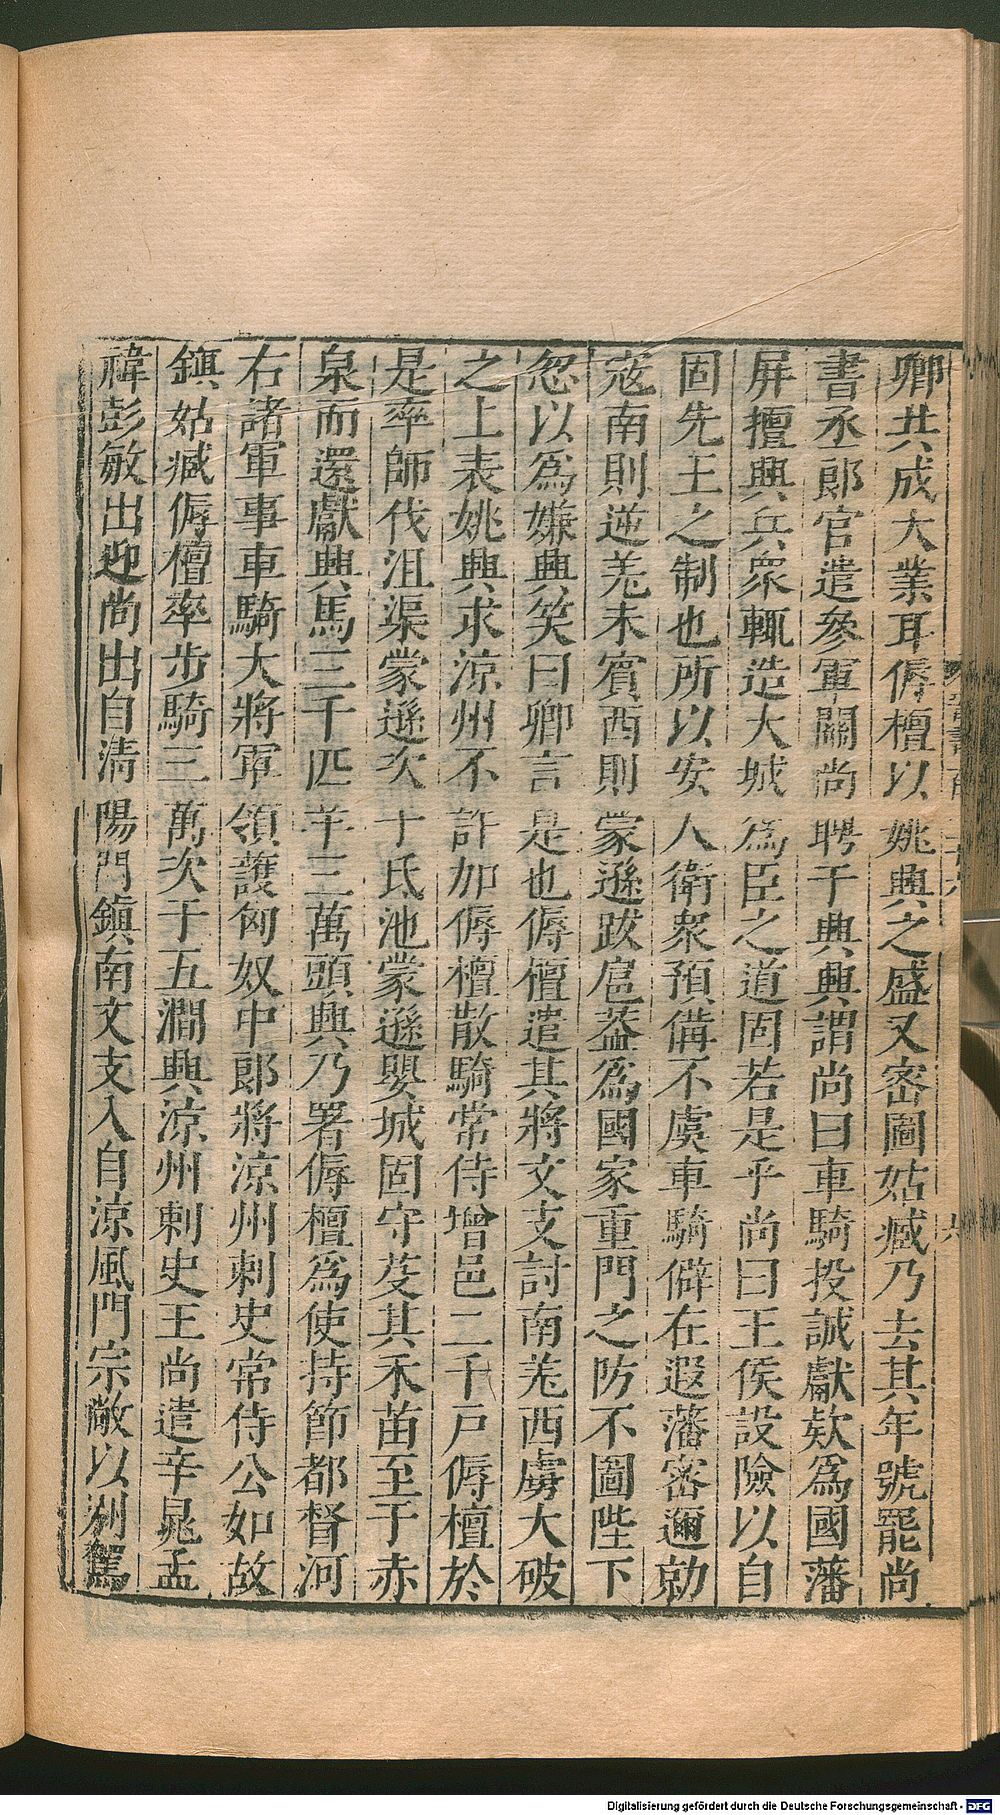 卿共成大業耳傉檀以姚興之盛又密圖姑臧乃去其年號罷尚
書丞郎官遣參軍關尚聘于興興謂尚曰車騎投誠獻欵爲國藩
屏擅興兵衆輒造大城爲臣之道固若是乎尚曰王侯設險以自
固先王之制也所以安人衛衆預備不虞車騎僻在遐藩密邇勍
寇南則逆羌未賓西則蒙遜跋扈葢爲國家重門之防不圖陛下
忽以爲嫌興笑曰卿言是也傉檀遣其將文支討南羌西虜大破
之上表姚興求涼州不許加傉檀散騎常侍增邑二千戸傉檀於
是率師伐沮渠蒙遜次于氐池蒙遜嬰城固守芟其禾苗至于赤
泉而還獻興馬三千匹羊三萬頭興乃署傉檀爲使持節都督河
右諸軍事車騎大將軍領護匈奴中郎將涼州刺史常侍公如故
鎮姑臧傉檀率步騎三萬次于五澗興涼州刺史王尚遣辛晁孟
禕彭敏出迎尚出自清陽門鎮南文支入自涼風門宗敞以别駕
Digitalisierung gefördert durch die Deutsche Forschungsgemeinschaft - DFG